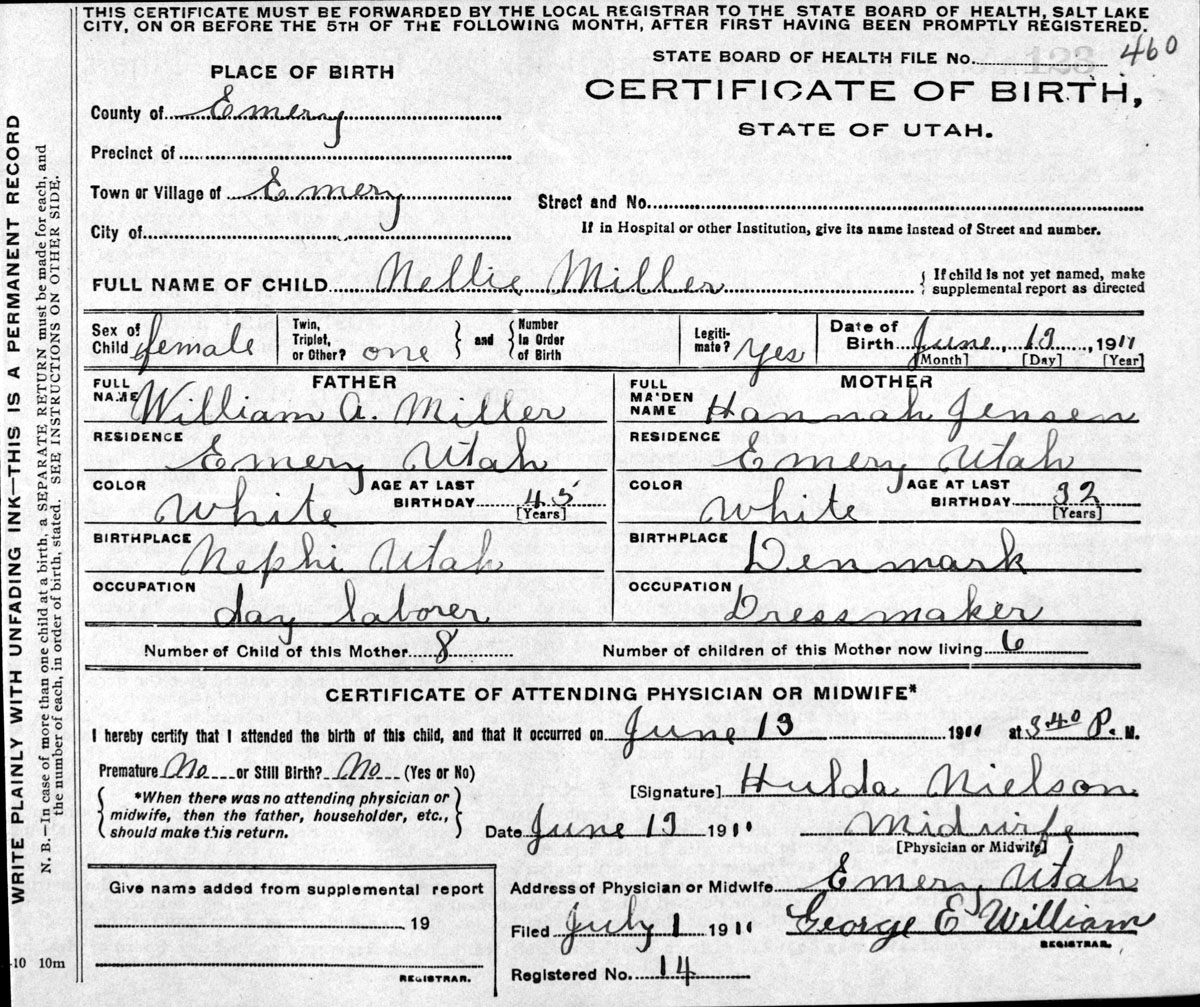 THIS CERTIFICATE MUST BE FORWARDED BY THE LOCAL REGISTRAR TO THE STATE BOARD OF HEALTH, SALT LAKE
CITY, ON OR BEFORE THE 5TH OF THE FOLLOWING MONTH, AFTER FIRST HAVING BEEN PROMPTLY REGISTERED.
STATE BOARD OF HEALTH FILE No. 123 460
PLACE OF BIRTH
CERTIFICATE OF BIRTH,
STATE OF UTAH.
County of Emery
Precinct of
Town or Village of Emery
Street and No.
City of
If in Hospital or other Institution, give its name instead of Street and number.
FULL NAME OF CHILD Nellie Miller
{ If child is not yet named, make
supplemental report as directed
Sex of Child female
Twin, Triplet, or Other? one } and { Number In Order of Birth
Legiti-mate? Yes
Date of Birth June, 13, 1911
[Month] [Day] [Year]
FATHER
FULL NAME William A. Miller
MOTHER
FULL MAIDEN NAME Hannah Jensen
RESIDENCE Emery Utah
RESIDENCE Emery Utah
COLOR White AGE AT LAST BIRTHDAY 45 [Years]
COLOR White AGE AT LAST BIRTHDAY 32 [Years]
BIRTHPLACE Nephi Utah
BIRTHPLACE Denmark
OCCUPATION day laborer
OCCUPATION Dressmaker
Number of Child of this Mother 8
Number of children of this Mother now living 6
CERTIFICATE OF ATTENDING PHYSICIAN OR MIDWIFE*
I hereby certify that I attended the birth of this child, and that it occurred on June 13 1911 at 3 40 P. M.
Premature No or Still Birth? No (Yes or No)
{ *When there was no attending physician or
midwife, then the father, householder, etc.,
should make this return. }
[Signature] Hulda Nielson
Date June 13 1911
Midwife
[Physician or Midwife]
Give name added from supplemental report
19
REGISTRAR.
Address of Physician or Midwife Emery Utah
Filed July 1 1911 George E William
REGISTRAR.
Registered No. 14
-10 10m
WRITE PLAINLY WITH UNFADING INK—THIS IS A PERMANENT RECORD
N. B.—In case of more than one child at a birth, a SEPARATE RETURN must be made for each, and
the number of each, in order of birth, stated. SEE INSTRUCTIONS ON OTHER SIDE.